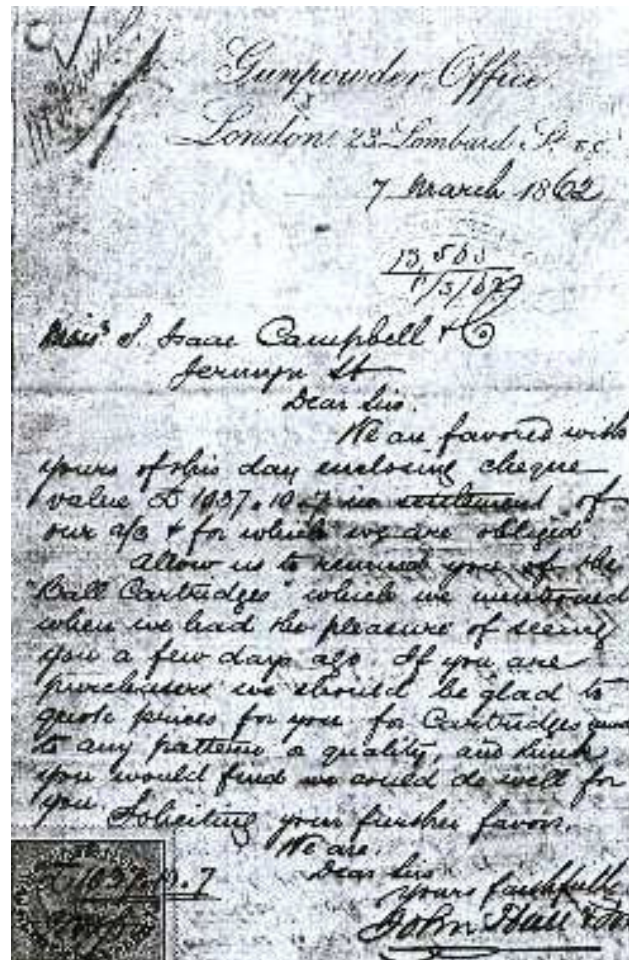 Gunpowder Office
London: 23 Lombard St E.C.
7 March 1862
13,503
Mess^rs S. Isaac Campbell & Co
Jermyn St
Dear Sirs.
We are favored with
yours of this day enclosing cheque
value £1037.10.7 in settlement of
our a/c & for which we are obliged
Allow us to remind you of the
"Ball Cartridges" which we mentioned
when we had the pleasure of seeing
you a few days ago. If you are
purchasers we should be glad to
quote prices for you for Cartridges
to any pattern or quality, and think
you would find we could do well for
you.
Soliciting your further favors.
We are.
Dear Sirs
£1037.10.7
yours faithfully
John Hall & Son